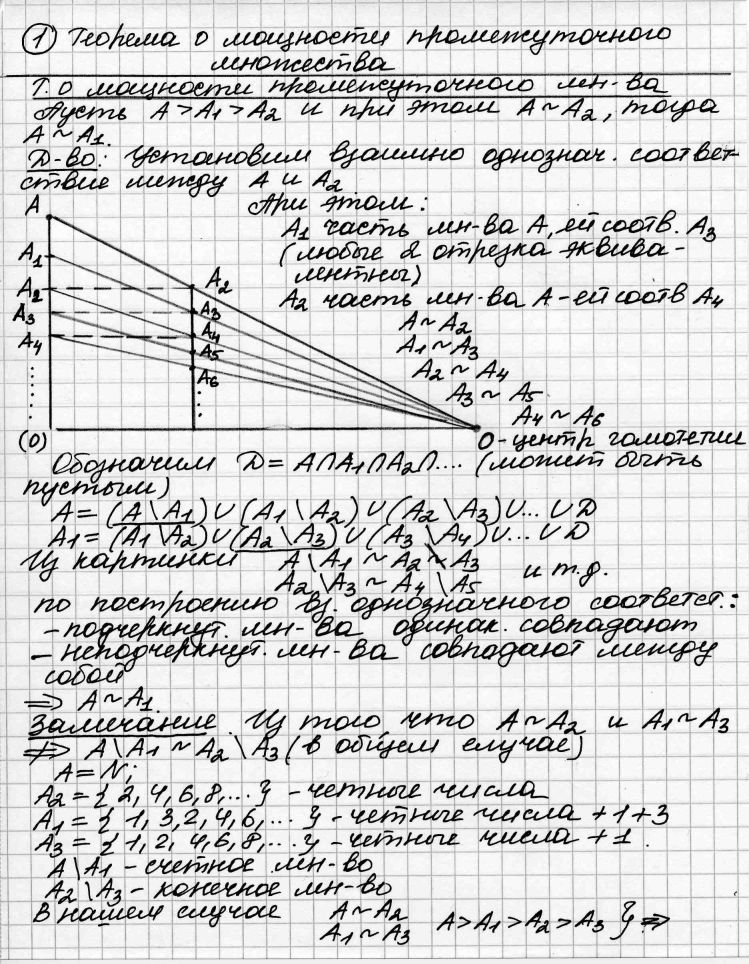 ① Теорема о мощности промежуточного
множества
Т. о мощности промежуточного мн-ва
Пусть A > A₁ > A₂ и при этом A ~ A₂, тогда
A ~ A₁.
Д-во: Установим взаимно однознач. соответ-
ствие между A и A₂
При этом:
A₁ часть мн-ва A, ей соотв. A₃
(любые 2 отрезка эквива-
лентны)
A₂ часть мн-ва A - ей соотв A₄
A ~ A₂
A₁ ~ A₃
A₂ ~ A₄
A₃ ~ A₅
A₄ ~ A₆
A
A₁
A₂
A₃
A₄
(O)
A₂
A₃
A₄
A₅
A₆
O - центр гомотетии
Обозначим D = A∩A₁∩A₂∩.... (может быть
пустым)
A = (A\A₁) ∪ (A₁\A₂) ∪ (A₂\A₃) ∪... ∪ D
A₁ = (A₁\A₂) ∪ (A₂\A₃) ∪ (A₃\A₄) ∪... ∪ D
Из картинки A\A₁ ~ A₂ \ A₃
A₂\A₃ ~ A₄\A₅ и т.д.
по построению вз. однозначного соответст.:
- подчеркнут. мн-ва одинак. совпадают
- неподчеркнут. мн-ва совпадают между
собой
⇒ A ~ A₁.
Замечание. Из того что A ~ A₂ и A₁ ~ A₃
⇏ A\A₁ ~ A₂\A₃ (в общем случае)
A = N;
A₂ = {2, 4, 6, 8,...} - четные числа
A₁ = {1, 3, 2, 4, 6,...} - четные числа +1+3
A₃ = {1, 2, 4, 6, 8,...} - четные числа +1.
A\A₁ - счетное мн-во
A₂\A₃ - конечное мн-во
В нашем случае A ~ A₂
A₁ ~ A₃ A > A₁ > A₂ > A₃ } ⇒